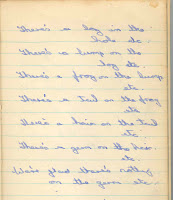 There's a log in the
hole etc.
There's a bump on the
log etc.
There's a frog on the bump
etc
There's a tail on the frog
etc
There's a hair on the tail
etc.
There's a germ on the hair.
etc.
there's nothing
on the germ etc.